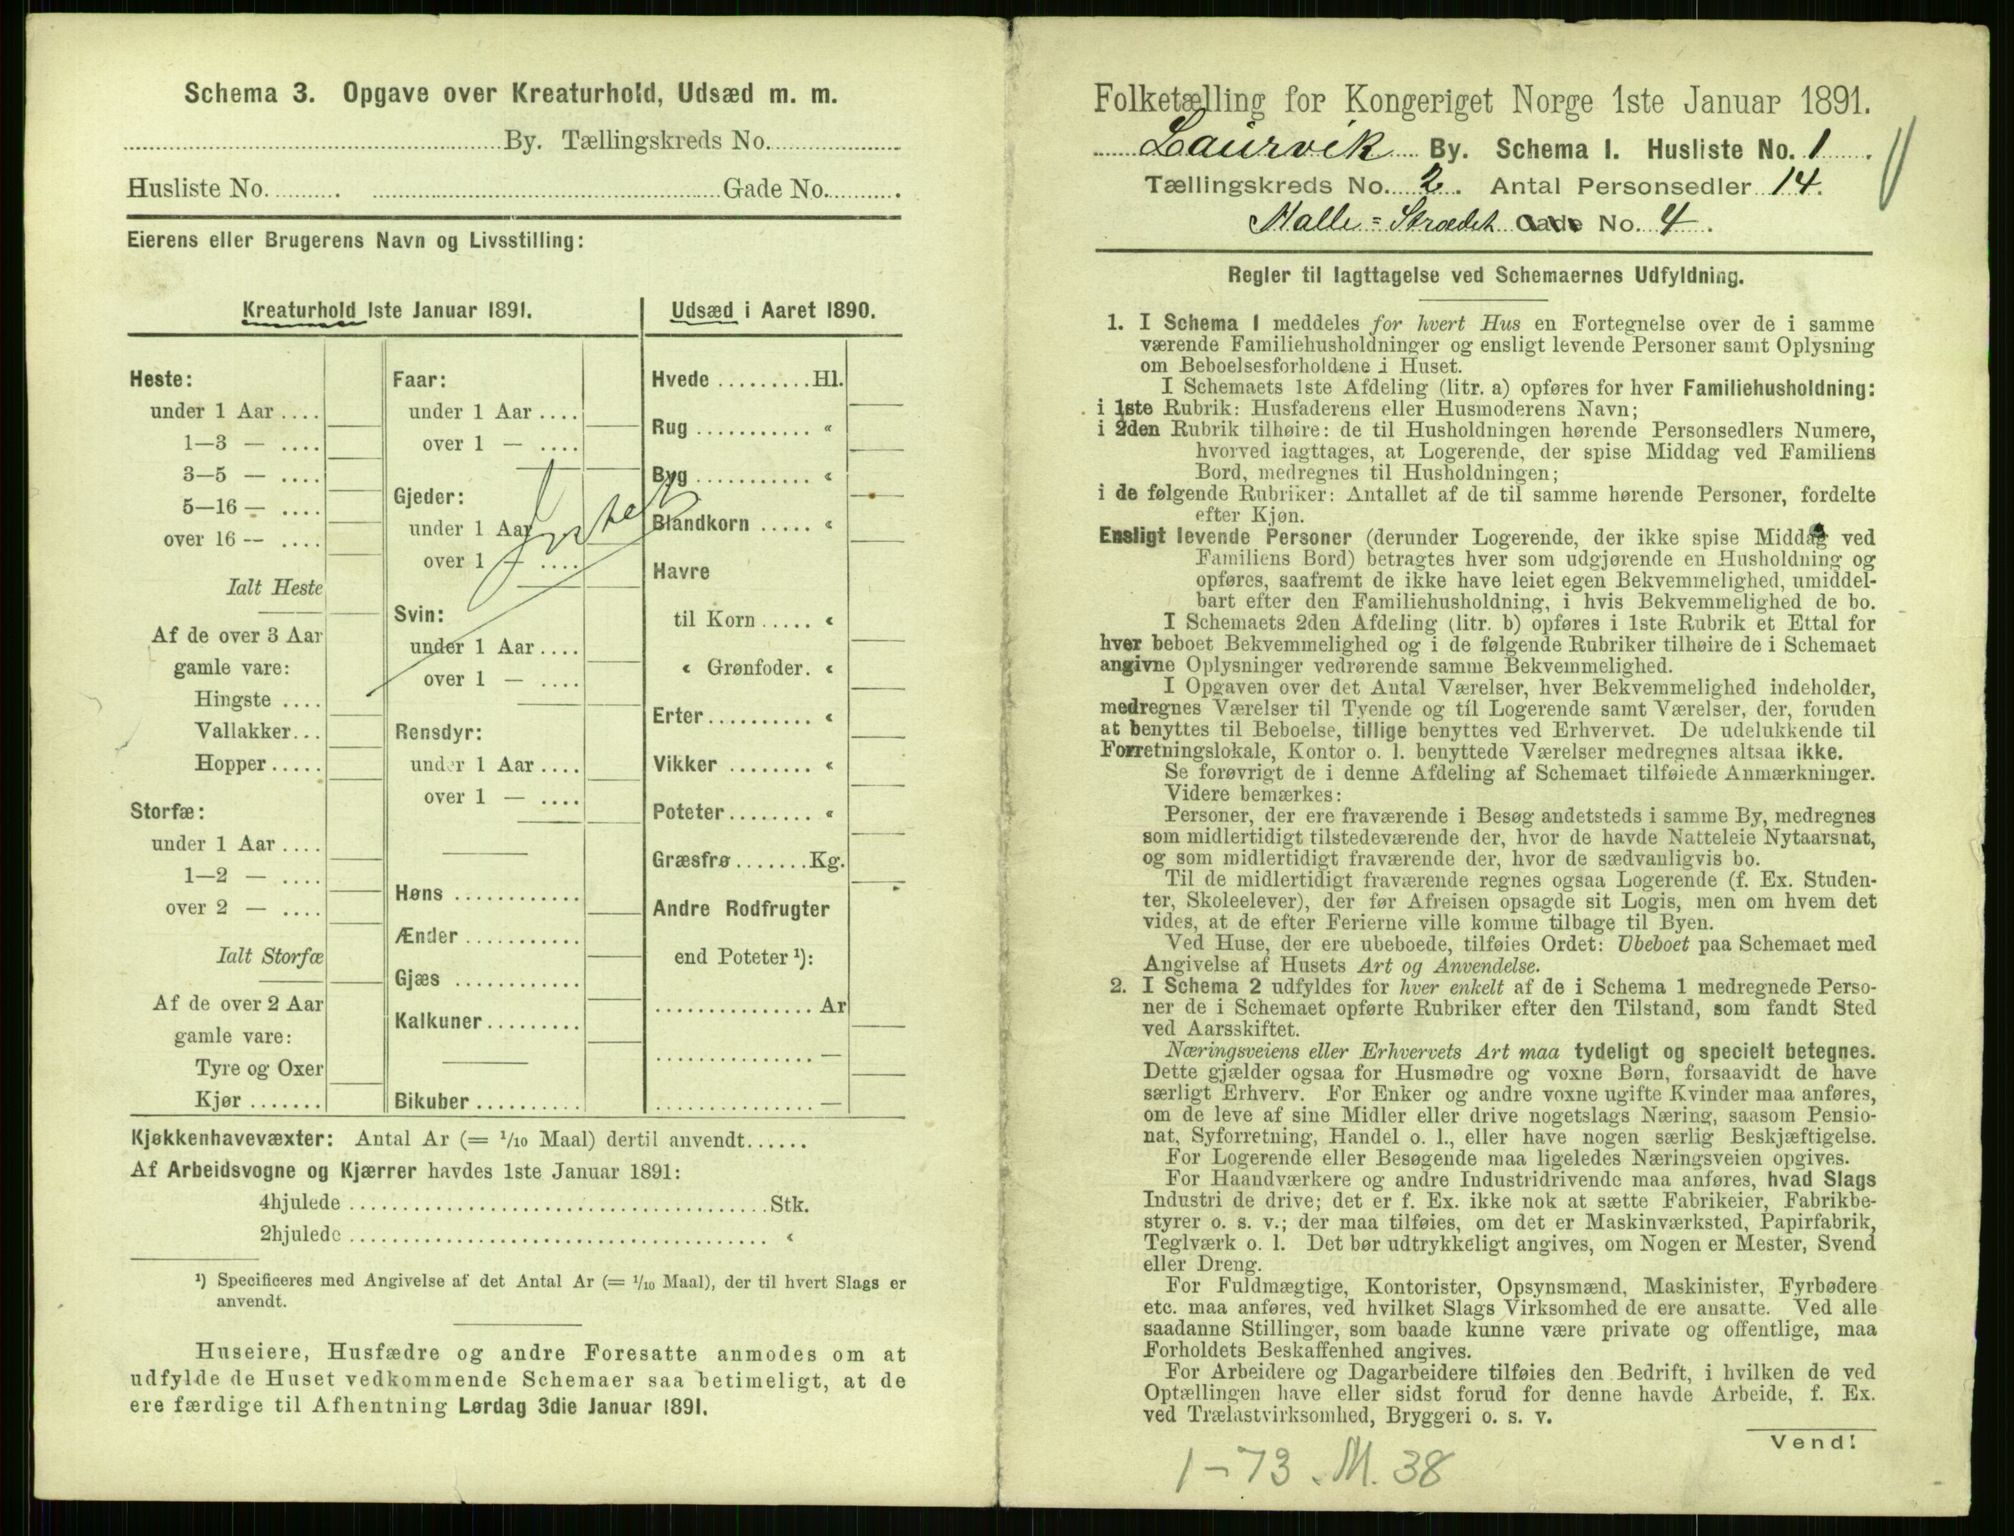 Schema 3. Opgave over Kreaturhold, Udsæd m. m.
By. Tællingskreds No.
Husliste No. Gade No.
Eierens eller Brugerens Navn og Livsstilling:
Kreaturhold 1ste Januar 1891.
Heste:
under 1 Aar
1—3 —
3—5 —
5—16 —
over 16 —
Ialt Heste
Af de over 3 Aar
gamle vare:
Hingste
Vallakker
Hopper
Storfæ:
under 1 Aar
1—2 —
over 2 —
Ialt Storfæ
Af de over 2 Aar
gamle vare:
Tyre og Oxer
Kjør
Faar:
under 1 Aar
over 1 —
Gjeder:
under 1 Aar
over 1 —
Svin:
under 1 Aar
over 1 —
Rensdyr:
under 1 Aar
over 1 —
Høns
Ænder
Gjæs
Kalkuner
Bikuber
Intet
Udsæd i Aaret 1890.
Hvede Hl.
Rug "
Byg "
Blandkorn "
Havre
til Korn "
" Grønfoder. "
Erter "
Vikker "
Poteter "
Græsfrø Kg.
Andre Rodfrugter
end Poteter ¹):
Ar
—
—
Kjøkkenhavevæxter: Antal Ar (= 1/10 Maal) dertil anvendt
Af Arbeidsvogne og Kjærrer havdes 1ste Januar 1891:
4hjulede Stk.
2hjulede "
¹) Specificeres med Angivelse af det Antal Ar (= 1/10 Maal), der til hvert Slags er
anvendt.
Huseiere, Husfædre og andre Foresatte anmodes om at
udfylde de Huset vedkommende Schemaer saa betimeligt, at de
ere færdige til Afhentning Lørdag 3die Januar 1891.
Folketælling for Kongeriget Norge 1ste Januar 1891.
Laurvik By. Schema I. Husliste No. 1
Tællingskreds No. 2. Antal Personsedler 14.
Malle=Strædet Gade No. 4.
Regler til Iagttagelse ved Schemaernes Udfyldning.
1. I Schema 1 meddeles for hvert Hus en Fortegnelse over de i samme
værende Familiehusholdninger og ensligt levende Personer samt Oplysning
om Beboelsesforholdene i Huset.
I Schemaets 1ste Afdeling (litr. a) opføres for hver Familiehusholdning:
i 1ste Rubrik: Husfaderens eller Husmoderens Navn;
i 2den Rubrik tilhøire: de til Husholdningen hørende Personsedlers Numere,
hvorved iagttages, at Logerende, der spise Middag ved Familiens
Bord, medregnes til Husholdningen;
i de følgende Rubriker: Antallet af de til samme hørende Personer, fordelte
efter Kjøn.
Ensligt levende Personer (derunder Logerende, der ikke spise Middag ved
Familiens Bord) betragtes hver som udgjørende en Husholdning og
opføres, saafremt de ikke have leiet egen Bekvemmelighed, umiddel-
bart efter den Familiehusholdning, i hvis Bekvemmelighed de bo.
I Schemaets 2den Afdeling (litr. b) opføres i 1ste Rubrik et Ettal for
hver beboet Bekvemmelighed og i de følgende Rubriker tilhøire de i Schemaet
angivne Oplysninger vedrørende samme Bekvemmelighed.
I Opgaven over det Antal Værelser, hver Bekvemmelighed indeholder,
medregnes Værelser til Tyende og til Logerende samt Værelser, der, foruden
at benyttes til Beboelse, tillige benyttes ved Erhvervet. De udelukkende til
Forretningslokale, Kontor o. l. benyttede Værelser medregnes altsaa ikke.
Se forøvrigt de i denne Afdeling af Schemaet tilføiede Anmærkninger.
Videre bemærkes:
Personer, der ere fraværende i Besøg andetsteds i samme By, medregnes
som midlertidigt tilstedeværende der, hvor de havde Natteleie Nytaarsnat,
og som midlertidigt fraværende der, hvor de sædvanligvis bo.
Til de midlertidigt fraværende regnes ogsaa Logerende (f. Ex. Studen-
ter, Skoleelever), der før Afreisen opsagde sit Logis, men om hvem det
vides, at de efter Ferierne ville komme tilbage til Byen.
Ved Huse, der ere ubeboede, tilføies Ordet: Ubeboet paa Schemaet med
Angivelse af Husets Art og Anvendelse.
2. I Schema 2 udfyldes for hver enkelt af de i Schema 1 medregnede Perso-
ner de i Schemaet opførte Rubriker efter den Tilstand, som fandt Sted
ved Aarsskiftet.
Næringsveiens eller Erhvervets Art maa tydeligt og specielt betegnes.
Dette gjælder ogsaa for Husmødre og voxne Børn, forsaavidt de have
særligt Erhverv. For Enker og andre voxne ugifte Kvinder maa anføres,
om de leve af sine Midler eller drive nogetslags Næring, saasom Pensio-
nat, Syforretning, Handel o. l., eller have nogen særlig Beskjæftigelse.
For Logerende eller Besøgende maa ligeledes Næringsveien opgives.
For Haandværkere og andre Industridrivende maa anføres, hvad Slags
Industri de drive; det er f. Ex. ikke nok at sætte Fabrikeier, Fabrikbe-
styrer o. s. v.; der maa tilføies, om det er Maskinværksted, Papirfabrik,
Teglværk o. l. Det bør udtrykkeligt angives, om Nogen er Mester, Svend
eller Dreng.
For Fuldmægtige, Kontorister, Opsynsmænd, Maskinister, Fyrbødere
etc. maa anføres, ved hvilket Slags Virksomhed de ere ansatte. Ved alle
saadanne Stillinger, som baade kunne være private og offentlige, maa
Forholdets Beskaffenhed angives.
For Arbeidere og Dagarbeidere tilføies den Bedrift, i hvilken de ved
Optællingen have eller sidst forud for denne havde Arbeide, f. Ex.
ved Trælastvirksomhed, Bryggeri o. s. v.
Vend!
1-73. M. 38